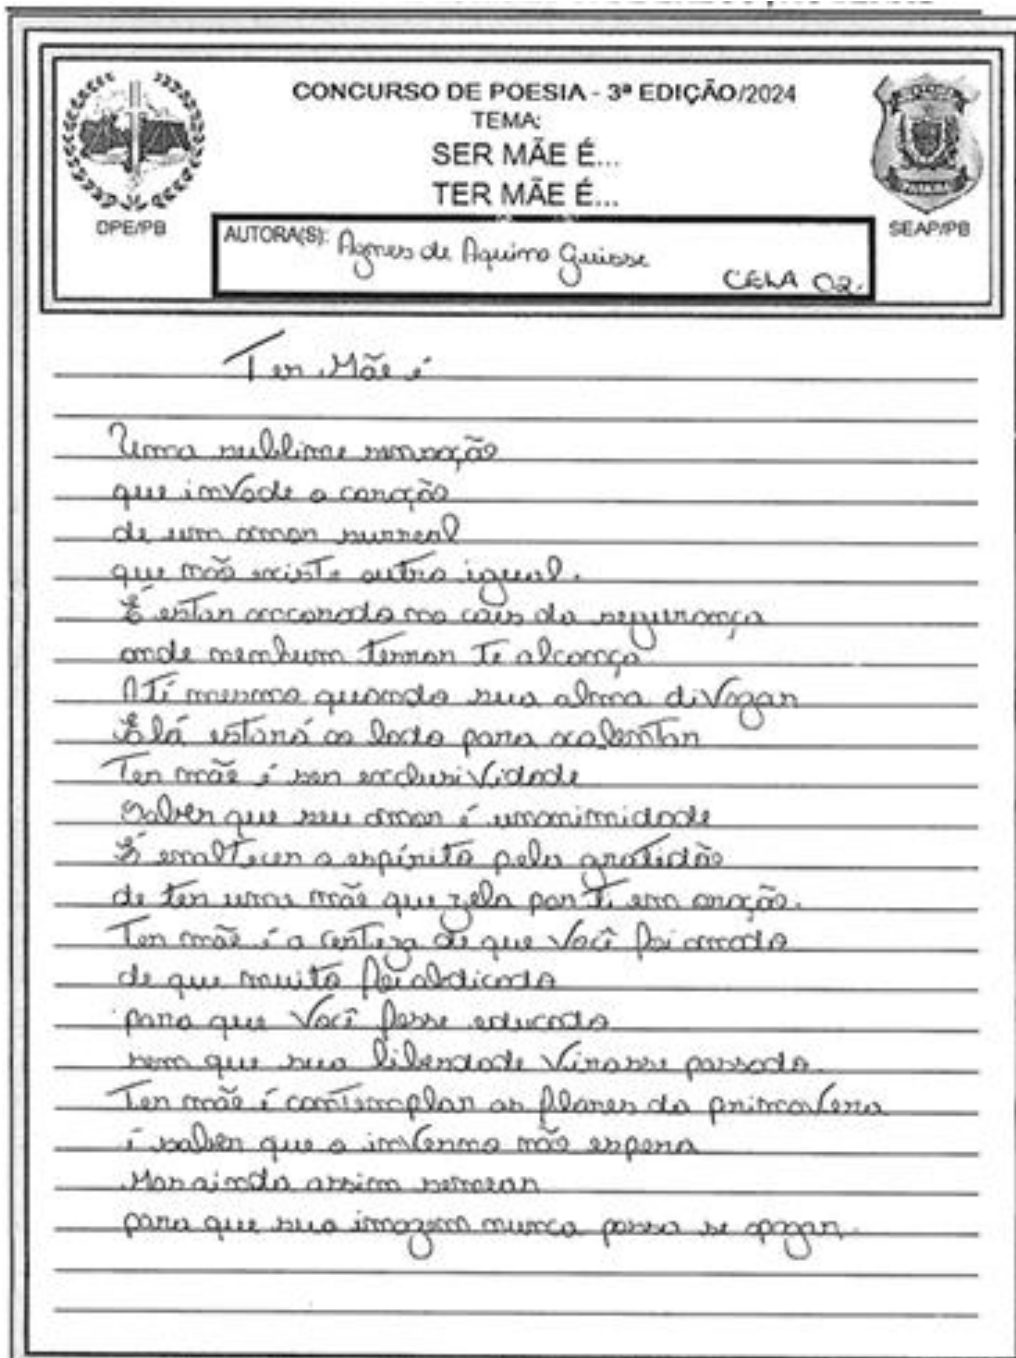 CONCURSO DE POESIA - 3ª EDIÇÃO/2024
TEMA:
SER MÃE É...
TER MÃE É...
DPE/PB
SEAP/PB
AUTORA(S): Agnes de Aquino Guisse
CELA 02.
Ter Mãe é
Uma sublime sensação
que invade o coração
de um amor surreal
que não existe outro igual.
É estar ancorado no cais da segurança
onde nenhum terror te alcança
Até mesmo quando sua alma divagar
Ela estará ao lado para acalentar
Ter mãe é ser exclusividade
Saber que seu amor é unanimidade
É enaltecer o espírito pela gratidão
de ter uma mãe que zela por ti em oração.
Ter mãe é a certeza de que você foi amado
de que muito foi abdicado
para que você fosse educado
sem que sua liberdade virasse passado.
Ter mãe é contemplar as flores da primavera
é saber que o inverno não espera
Mas ainda assim semear
para que sua imagem nunca possa se apagar.